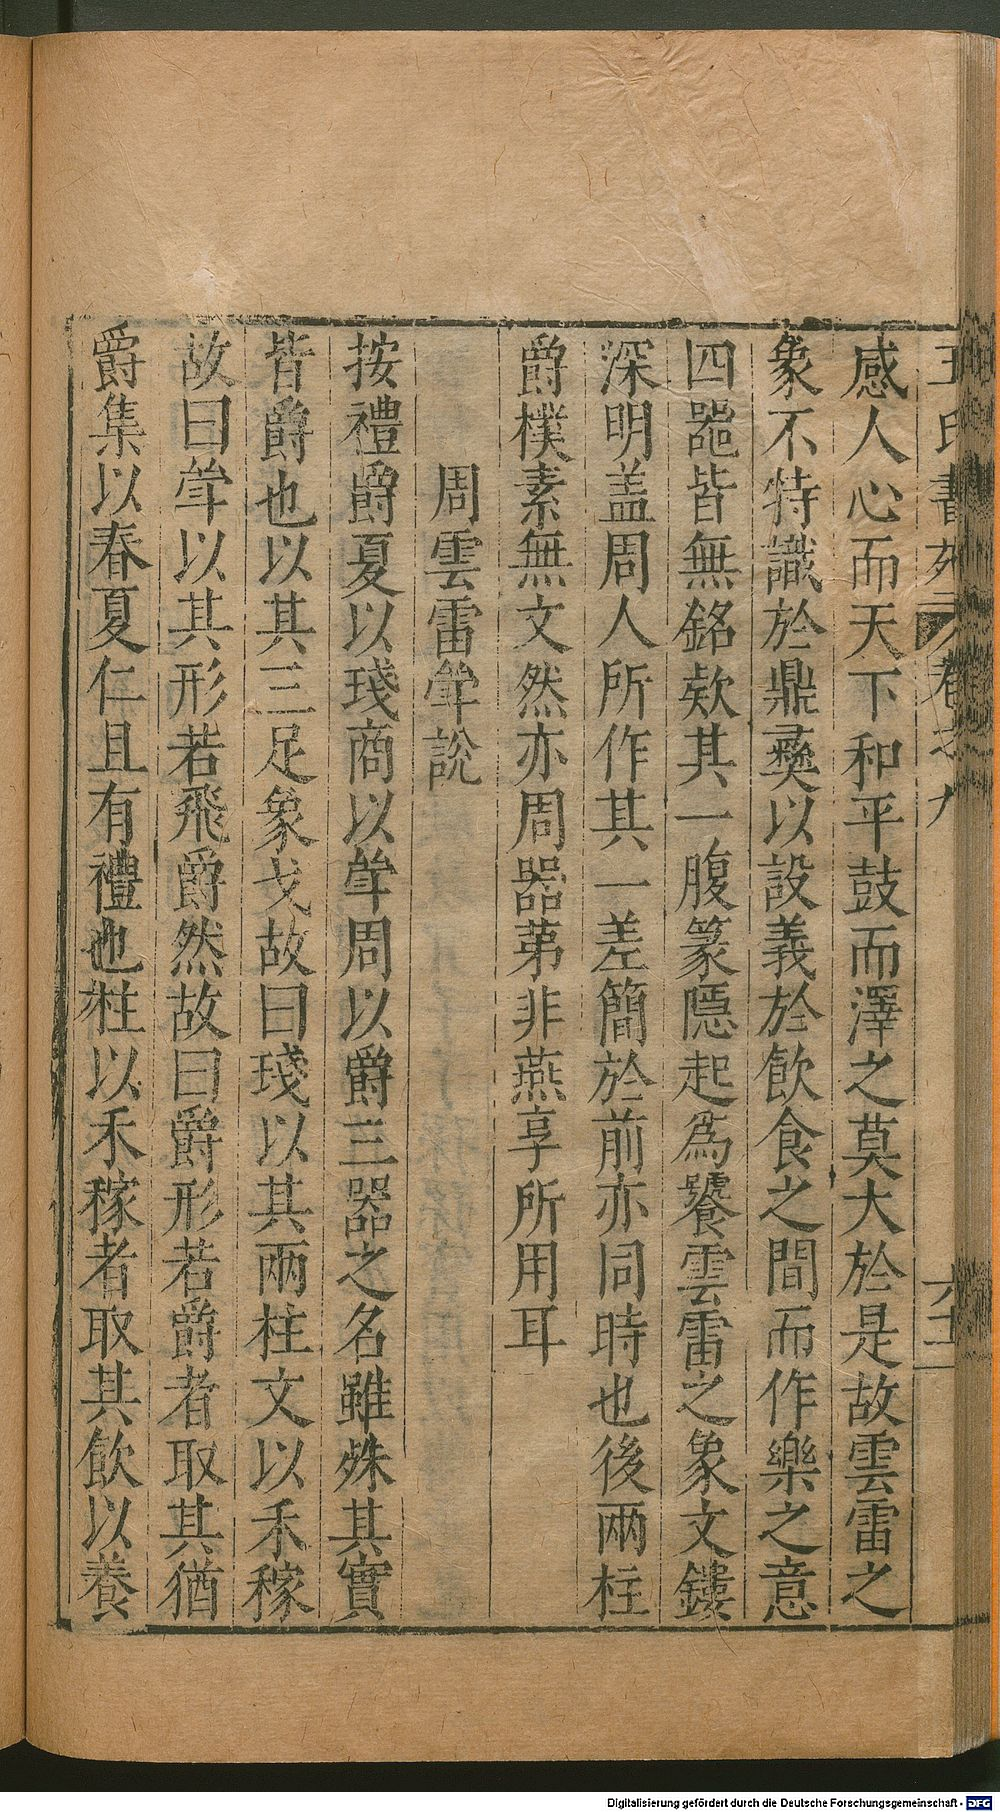 王氏書苑 卷之九 六十二
感人心而天下和平鼓而澤之莫大於是故雲雷之
象不特識於鼎彝以設義於飲食之間而作樂之意
四噐皆無銘欵其一腹篆隱起爲饕雲雷之象文鏤
深明盖周人所作其一差簡於前亦同時也後兩柱
爵樸素無文然亦周器苐非燕享所用耳
周雲雷斝説
按禮爵夏以琖商以斝周以爵三器之名雖殊其實
皆爵也以其三足象戈故曰琖以其兩柱文以禾稼
故曰斝以其形若飛爵然故曰爵形若爵者取其猶
爵集以春夏仁且有禮也柱以禾稼者取其飲以養
Digitalisierung gefördert durch die Deutsche Forschungsgemeinschaft - DFG